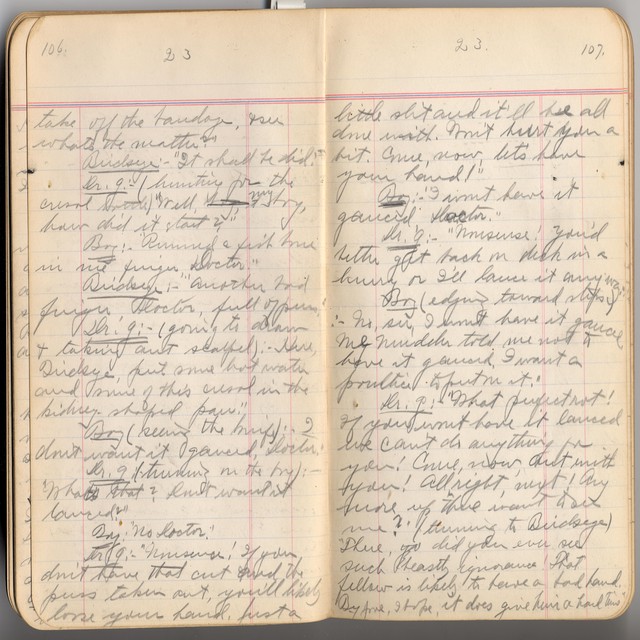 106.
23
take off the bandage, & see
what's the matter?"
Birdseye:- "It shall be did."
Dr. G:- (hunting for the
cresol) "Well, my boy,
how did it start?"
Boy:- "Runned a fish bone
in me finger, Doctor."
Birdseye:- "Another bad
finger, Doctor, full of puss."
Dr. G:- (going to
& taking out scalpel):- "Here,
Birdseye, put some hot water
and some of this cresol in the
kidney shaped pan."
Boy (seeing the knife):- "I
don't want it gaunced, Doctor."
Dr. G. (turning on the boy):-
"What's that? Don't want it
lanced?"
Boy: "No Doctor."
Dr. G:- "Nonsense! If you
don't have that cut and the
puss taken out, you'll likely
lose your hand. Just a
23.
107.
little slit and it'll be all
done with. Won't hurt you a
bit. Come, now, let's have
your hand!"
Boy:- "I wont have it
gaunced Doctor."
Dr. G:- "Nonsense! You'd
better get back on deck in a
hurry or I'll lance it anyway."
Boy (edging toward steps)
:- "No, sir, I won't have it gaunced
Me mudder told me not to
have it gaunced. I want a
poultice to put on it."
Dr. G:- "What perfect rot!
If you won't have it lanced
we can't do anything for
you! Come, now, out with
you! All right, next! Any
more up there want to see
me?" (turning to Birdseye)
"There, did you ever see
such beastly ignorance! That
fellow is likely to have a bad hand.
By Jove, I hope, it does give him a hard time"